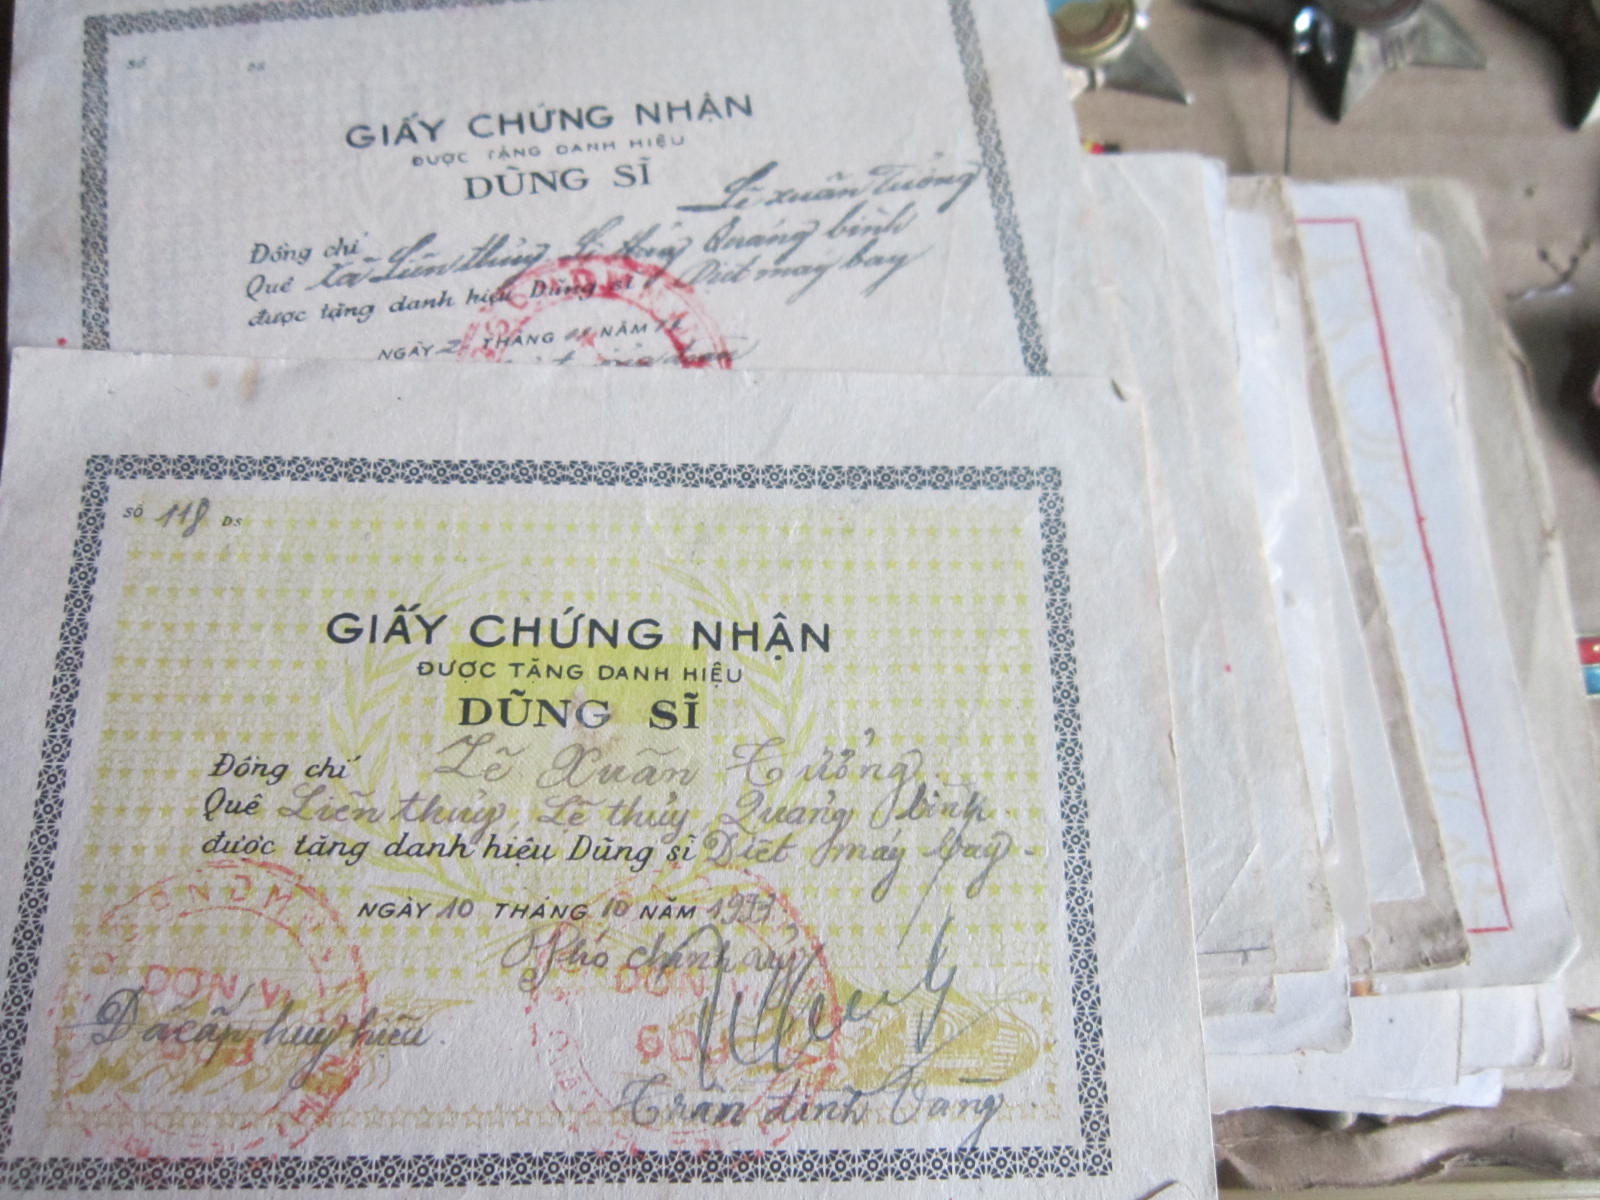 SỐ ĐS
GIẤY CHỨNG NHẬN
ĐƯỢC TẶNG DANH HIỆU
DŨNG SĨ
Đồng chí Lê Xuân Tưởng
Quê Xã Liên thủy Lệ thủy Quảng bình
được tặng danh hiệu Dũng sĩ Diệt máy bay
NGÀY 2 THÁNG NĂM
SỐ 118 DS
GIẤY CHỨNG NHẬN
ĐƯỢC TẶNG DANH HIỆU
DŨNG SĨ
Đồng chí Lê Xuân Tưởng
Quê Liên thủy, Lệ thủy Quảng bình
được tặng danh hiệu Dũng sĩ Diệt máy bay
NGÀY 10 THÁNG 10 NĂM 1973
Phó chính ủy
ĐƠN VỊ
ĐƠN VỊ
Đã cấp huy hiệu.
Trần đình Vàng